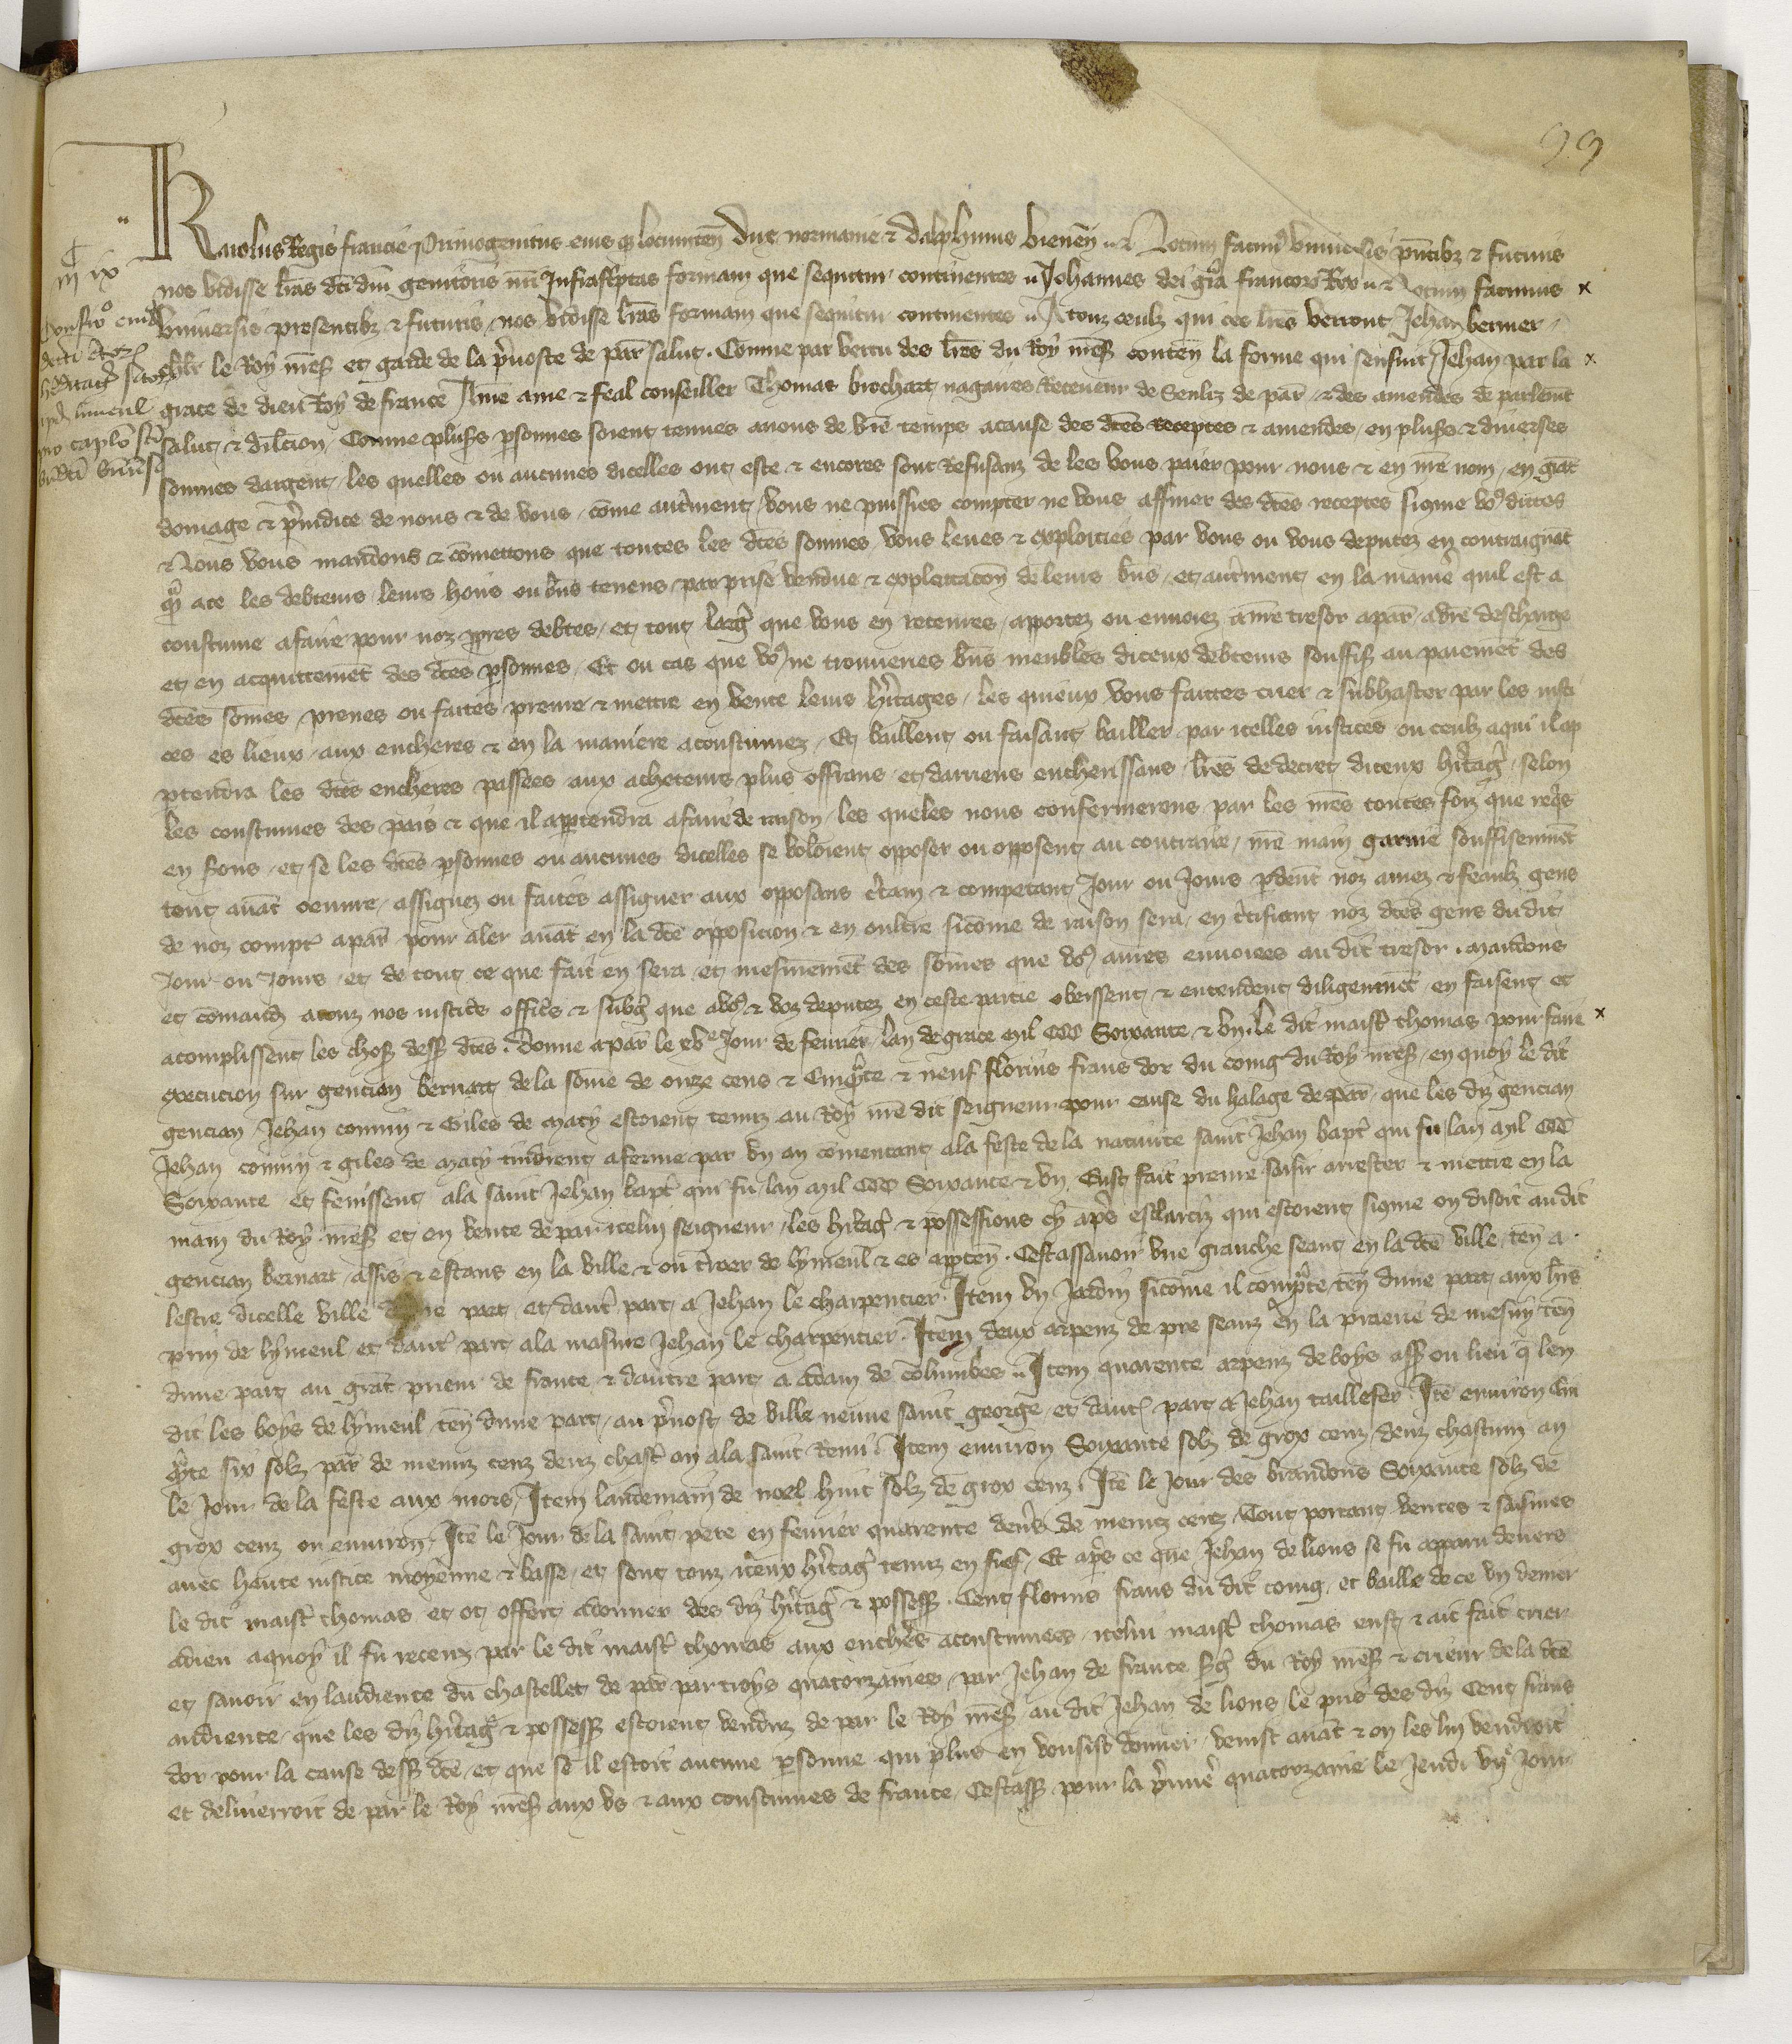 99
iiij ix
Confirmo
Karolus Regis francie Primogenitus eius locumten Dux normanie & dalphinus Vienen Notum facimus universis pntibz & futuris
nos vidisse lras dti dni genitoris nri Infrascptas formam que sequitur continentes Johannes dei gra francorum Rex & Notum facimus x
Universis presentibz & futuris nos vidisse lras formam que sequitur continentes A touz ceulz qui ces lres verront Jehan bernier
chlr le Roy nres et garde de la pvoste de par salut. Comme par vertu des lres du Roy nres conten la forme qui sensuit Jehan par la x
grace de dieu Roy de france A nre ame & feal conseiller Thomas brochart receveur de Senliz de par & des amendes de parlemt
salut & dilcion Comme plus psonnes soient tenues a nous de bie temps a cause des dtes receptes & amendes en plus & diverses
sommes dargent les quelles ou aucunes dicelles ont este & encores sont Refusanz de les vous paier pour nous & en nre nom en grat
domage & piudice de nous & de vous come autment vous ne puissies compter ne vous affiner des dtes receptes si que vo dittes
Nous vous mandons & comettons que toutes les dtes sommes vous leves & exploities par vous ou vous deputez en contraignat
a ce les debteurs leurs hoirs ou bns tenens par prise vendue & exploitacon de leurs bns et autment en la manie quil est a
coustume a faire pour noz ppres debtes et tout larg que vous en recevres apportez ou envoiez a nre tresor a par a vre descharge
et en acquittemet des dtes psonnes Et ou cas que vo ne trouveries bns meubles diceux debteurs souffis au paiemet des
dtes somes prenes ou faites prenre & mettre en vente leurs hitages les quieux vous faittes crier & subhaster par les iusti
ces es lieux aux encheres & en la maniere acoustumez Et baillent ou faisant bailler par icelles iustices ou ceulz a qui il ap
ptendra les dtes encheres passees aux acheteurs plus offrans et darriens encherissans lres de decret diceux hitag selon
les coustumes des pais & que il apptendra a faire de raison les queles nous confermerons par les nres toutes foiz que reqs
en sons et se les dtes psonnes ou aucunes dicelles se voloient opposer ou opposent au contraire nre main garnie souffisenmet
tout avat oeuvre assignez ou faites assigner aux opposans ctain & competant Jour ou Jours pdent noz amez & feaulz gens
de noz compt a par pour aler avat en la dte opposicion & en oultre sicome de raison sera en ctifiant noz dtes gens dudit
Jour ou Jours et de tout ce que fait en sera et mesmemet des somes que vo aures envoiees au dit tresor mandons
et comand a touz nos iusticiers officis & subg que a vo & voz deputez en ceste partie obeissent & entendent diligenmet en faisent et
acomplissent les chos dess dtes. Donne a par le xve Jour de fevrier lan de grace mil CCC Soixante & un le dit maist thomas pour faire x
execucion sur gencian bernart de la some de onze cens & cinqte & neuf florins frans dor du coing du Roy nres en quoy le dit
gencian Jehan commin & Giles de macy estoient tenuz au Roy nre dit seigneur pour cause du halage de par que les diz gencian
Jehan commin & giles de macy tindrent a ferme par un an comencant a la feste de la nativite saint Jehan bapt qui fu lan mil CCC
Soixante et fenissent a la saint Jehan bapt qui fu lan mil CCC Soixante & un Eust fait prenre saisir arrester & mettre en la
main du Roy nres et en vente de par icelui seigneur les hitag & possessions cy aps esclarciz qui estoient sique on disoit au dit
gencian bernart assis & estans en la ville & ou tirroer de lymeul & es apten. Cestassavoir une granche seant en la dte ville ten a
lestre dicelle ville dune part et daut part a Jehan le charpentier. Item un Jardin sicome il compte ten dune part aux hirs
prin de lymeul et daut part a la masure Jehan le charpentier. Item deux arpenz de pre seanz en la praerie de mesny ten
dune part au grat prieur de france & dautre part a adam de columbes Item quarente arpenz de boys ass ou lieu q len
dit les boys de lymeul ten dune part au pvost de ville neuve saint george et daut part a Jehan taillefer Ite environ cin
qte six solz par de menuz cenz deuz chast an a la saint Remi. Item environ Soixante solz de grox cenz deuz chascun an
le Jour de la feste aux mors Item landemain de noel huit solz de grox cenz Ite le Jour des brandons Soixante solz de
grox cenz ou environ Ite le Jour de la saint pere en fevrier quarente deners de menuz cenz Tout portant ventes & saisines
avec haute iustice moyenne & basse et sont touz iceux hitag tenuz en fief Et aps ce que Jehan de lions se fu apparu devers
le dit maist thomas et ot offert a donner des diz hitag & possess Cent florins frans du dit coing et baille de ce un denier
a dieu a quoy il fu receuz par le dit maist thomas aux encheres acoustumees icelui maist thomas eust & ait fait crier
et savoir en laudience du chastellet de par par troys quatorzaines par Jehan de france serg du Roy nres & crieur de la dte
audience que les diz hitag & possess estoient venduz de par le Roy nres au dit Jehan de lions le pris des diz Cent frans
dor pour la cause dess dte et que se il estoit aucune psonne qui plus en vousist donner venist avat & on les lui vendroit
et deliverroit de par le Roy nres aux us & aux coustumes de france Cestass pour la pmie quatorzaine le Jeudi vije Jour